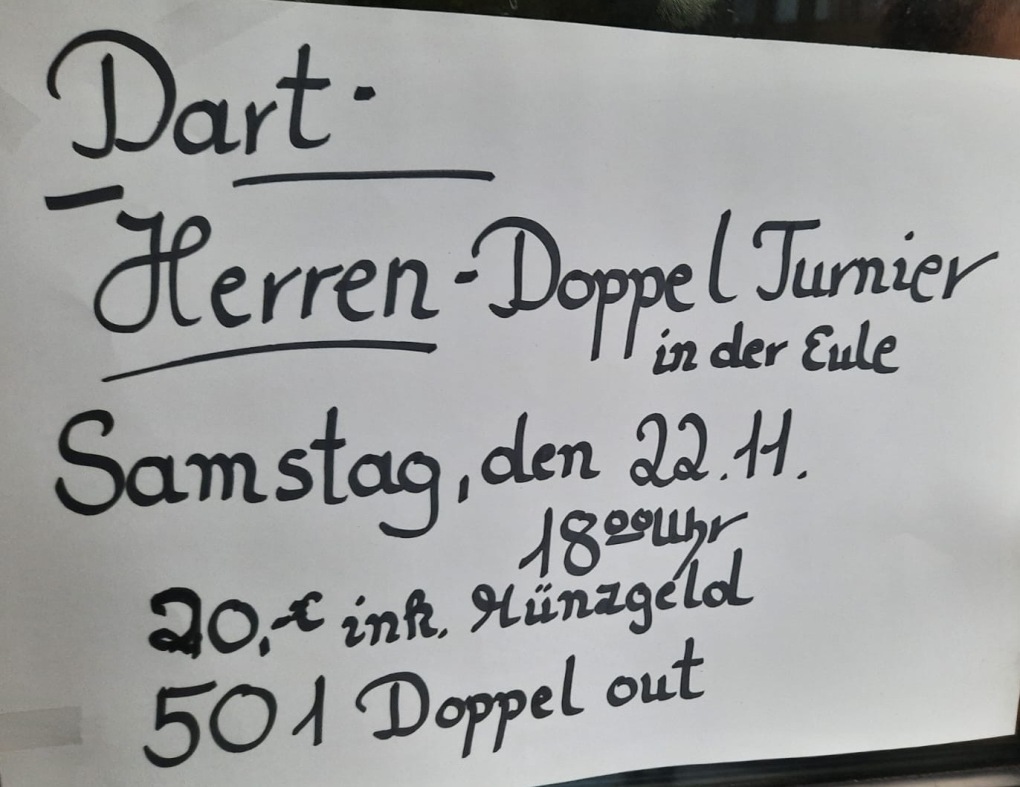 Dart-
Herren-Doppel Turnier
in der Eule
Samstag, den 22.11.
18⁰⁰ Uhr
20,-€ ink. Münzgeld
501 Doppel out